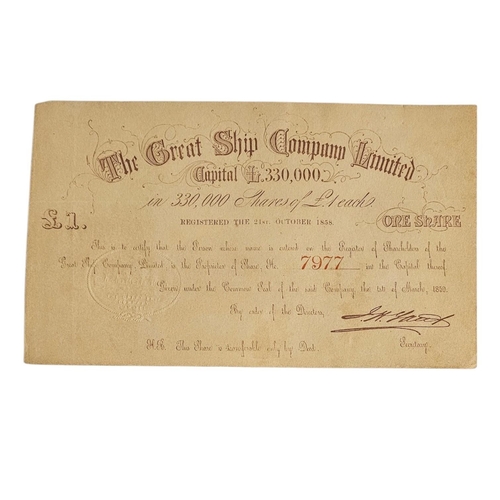 The Great Ship Company Limited
Capital £330,000.
in 330,000 Shares of £1 each.
REGISTERED THE 21st. OCTOBER 1858.
£1. ONE SHARE
This is to certify that the Person whose name is entered in the Register of Shareholders of the
Great Ship Company Limited is the Proprietor of Share, No. 7977 in the Capital thereof
Given under the Common Seal of the said Company, the 1st of March, 1859.
By order of the Directors,
Secretary.
N.B. This Share is transferable only by Deed.